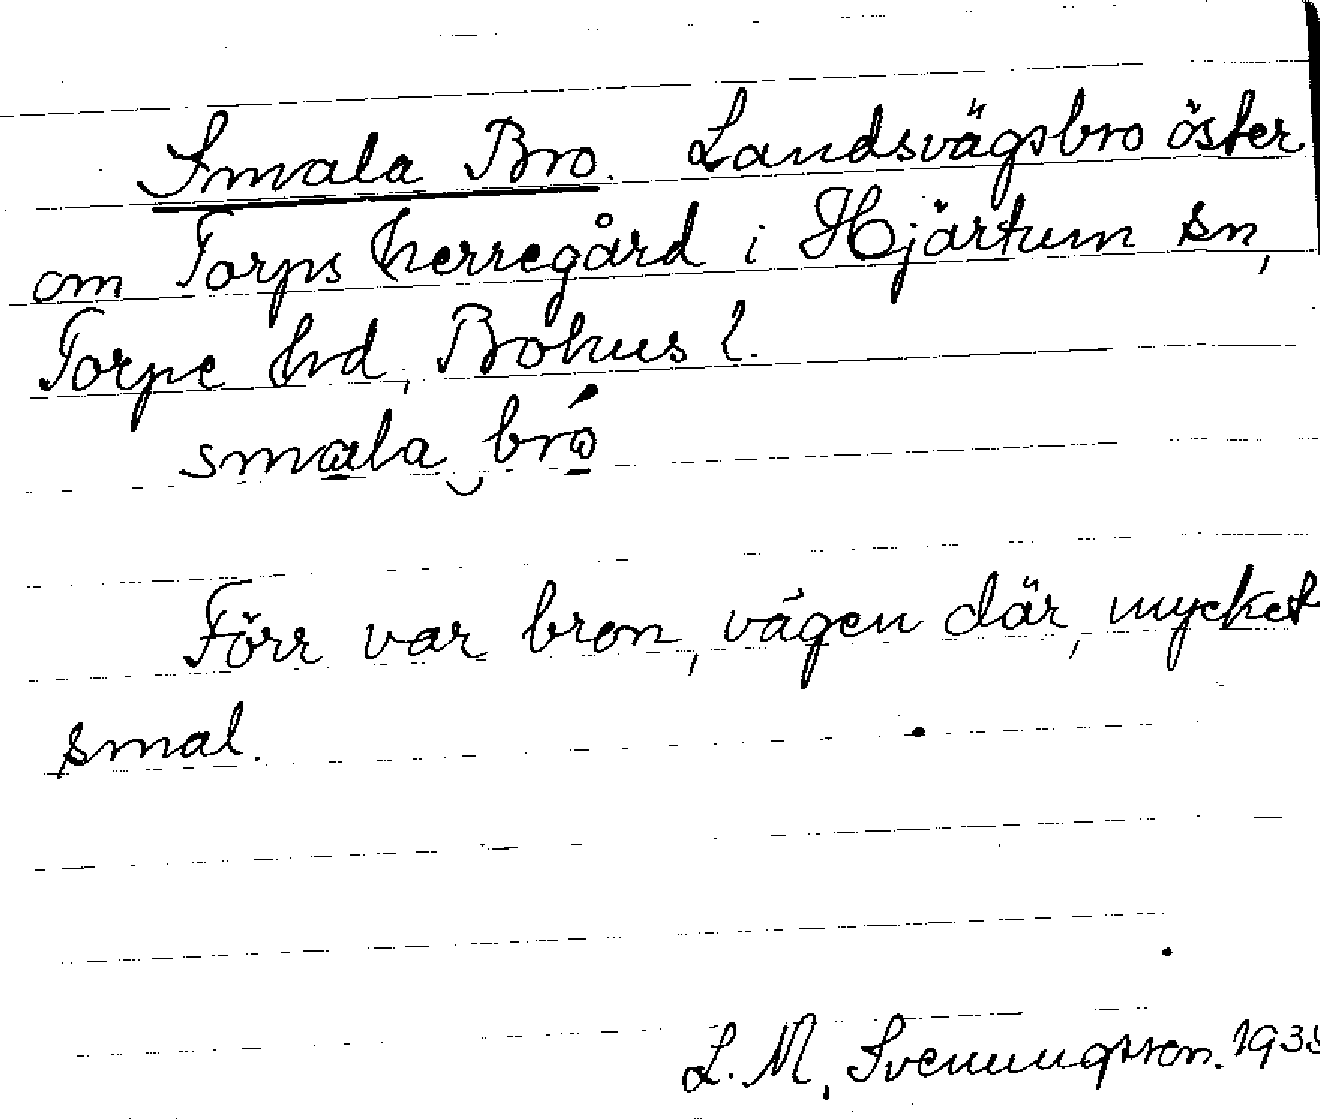 Smala Bro. Landsvägsbro öster
om Torps herregård i Hjärtum sn,
Torpe hd, Bohus l.
smala bró
Förr var bron, vägen där, mycket
smal.
L. M. Svenungsson.